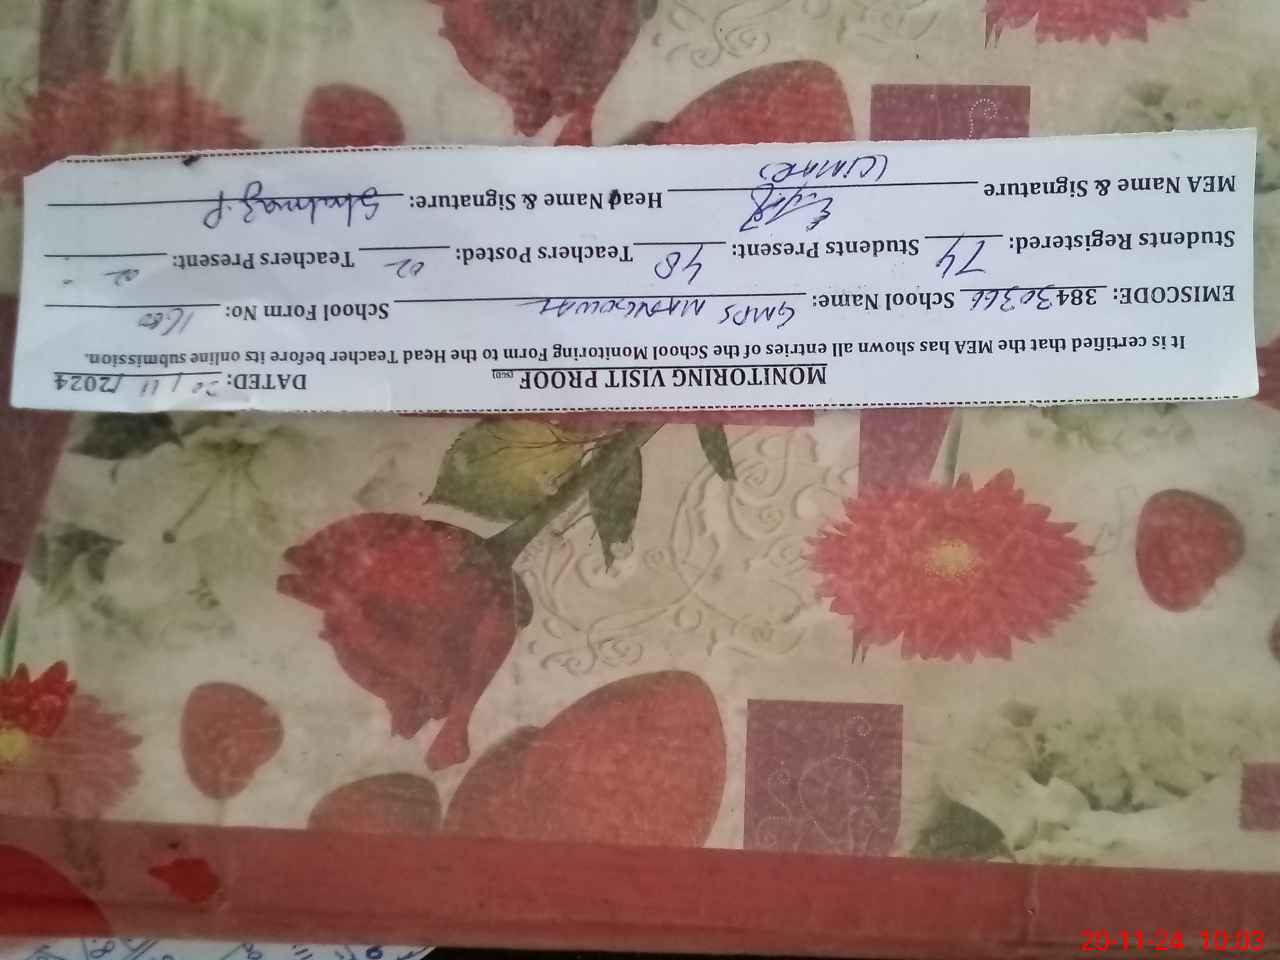 MONITORING VISIT PROOF DATED: 20/11/2024
It is certified that the MEA has shown all entries of the School Monitoring Form to the Head Teacher before its online submission.
EMISCODE: 38430366 School Name: GMPS School Form No:
Students Registered: 74 Students Present: 48 Teachers Posted: 02 Teachers Present: 02
MEA Name & Signature Head Name & Signature: Shahnaz. P
20-11-24 10:03